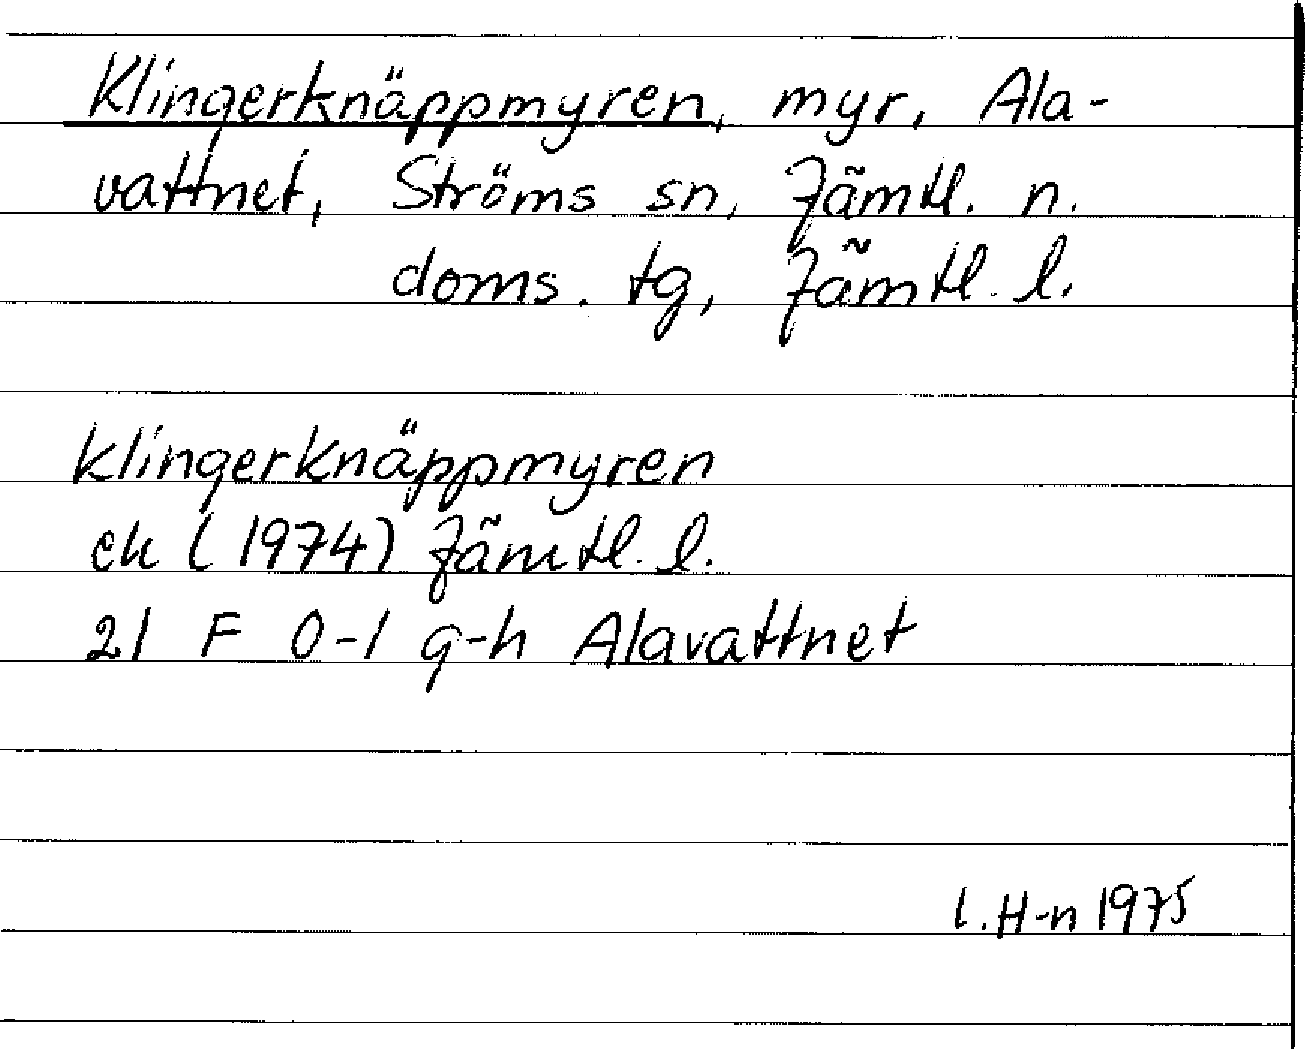 Klingerknäppmyren, myr, Ala-
vattnet, Ströms sn, Jämtl. n.
doms. tg, Jämtl. l.
klingerknäppmyren
ek (1974) Jämtl. l.
21 F 0-1 g-h Alavattnet
l. H-n 1975